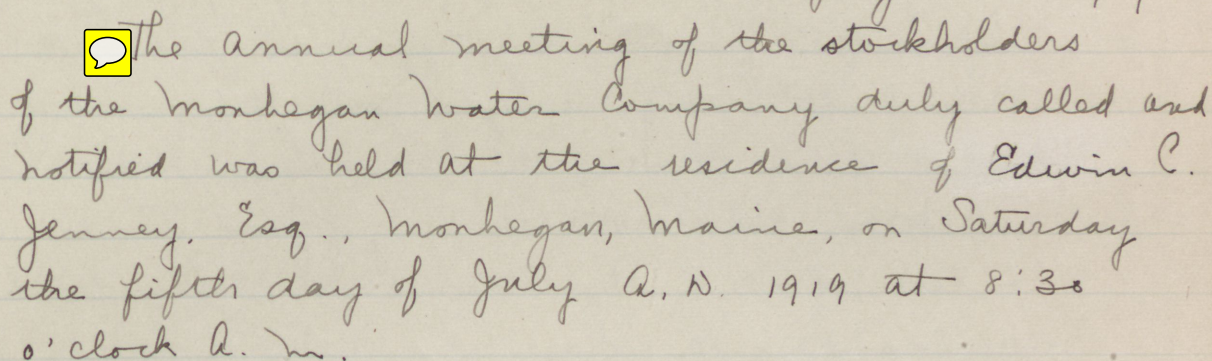 The annual meeting of the stockholders
of the Monhegan Water Company duly called and
notified was held at the residence of Edwin C.
Jenney, Esq., Monhegan, Maine, on Saturday
the fifth day of July A. D. 1919 at 8:30
o'clock A. M.